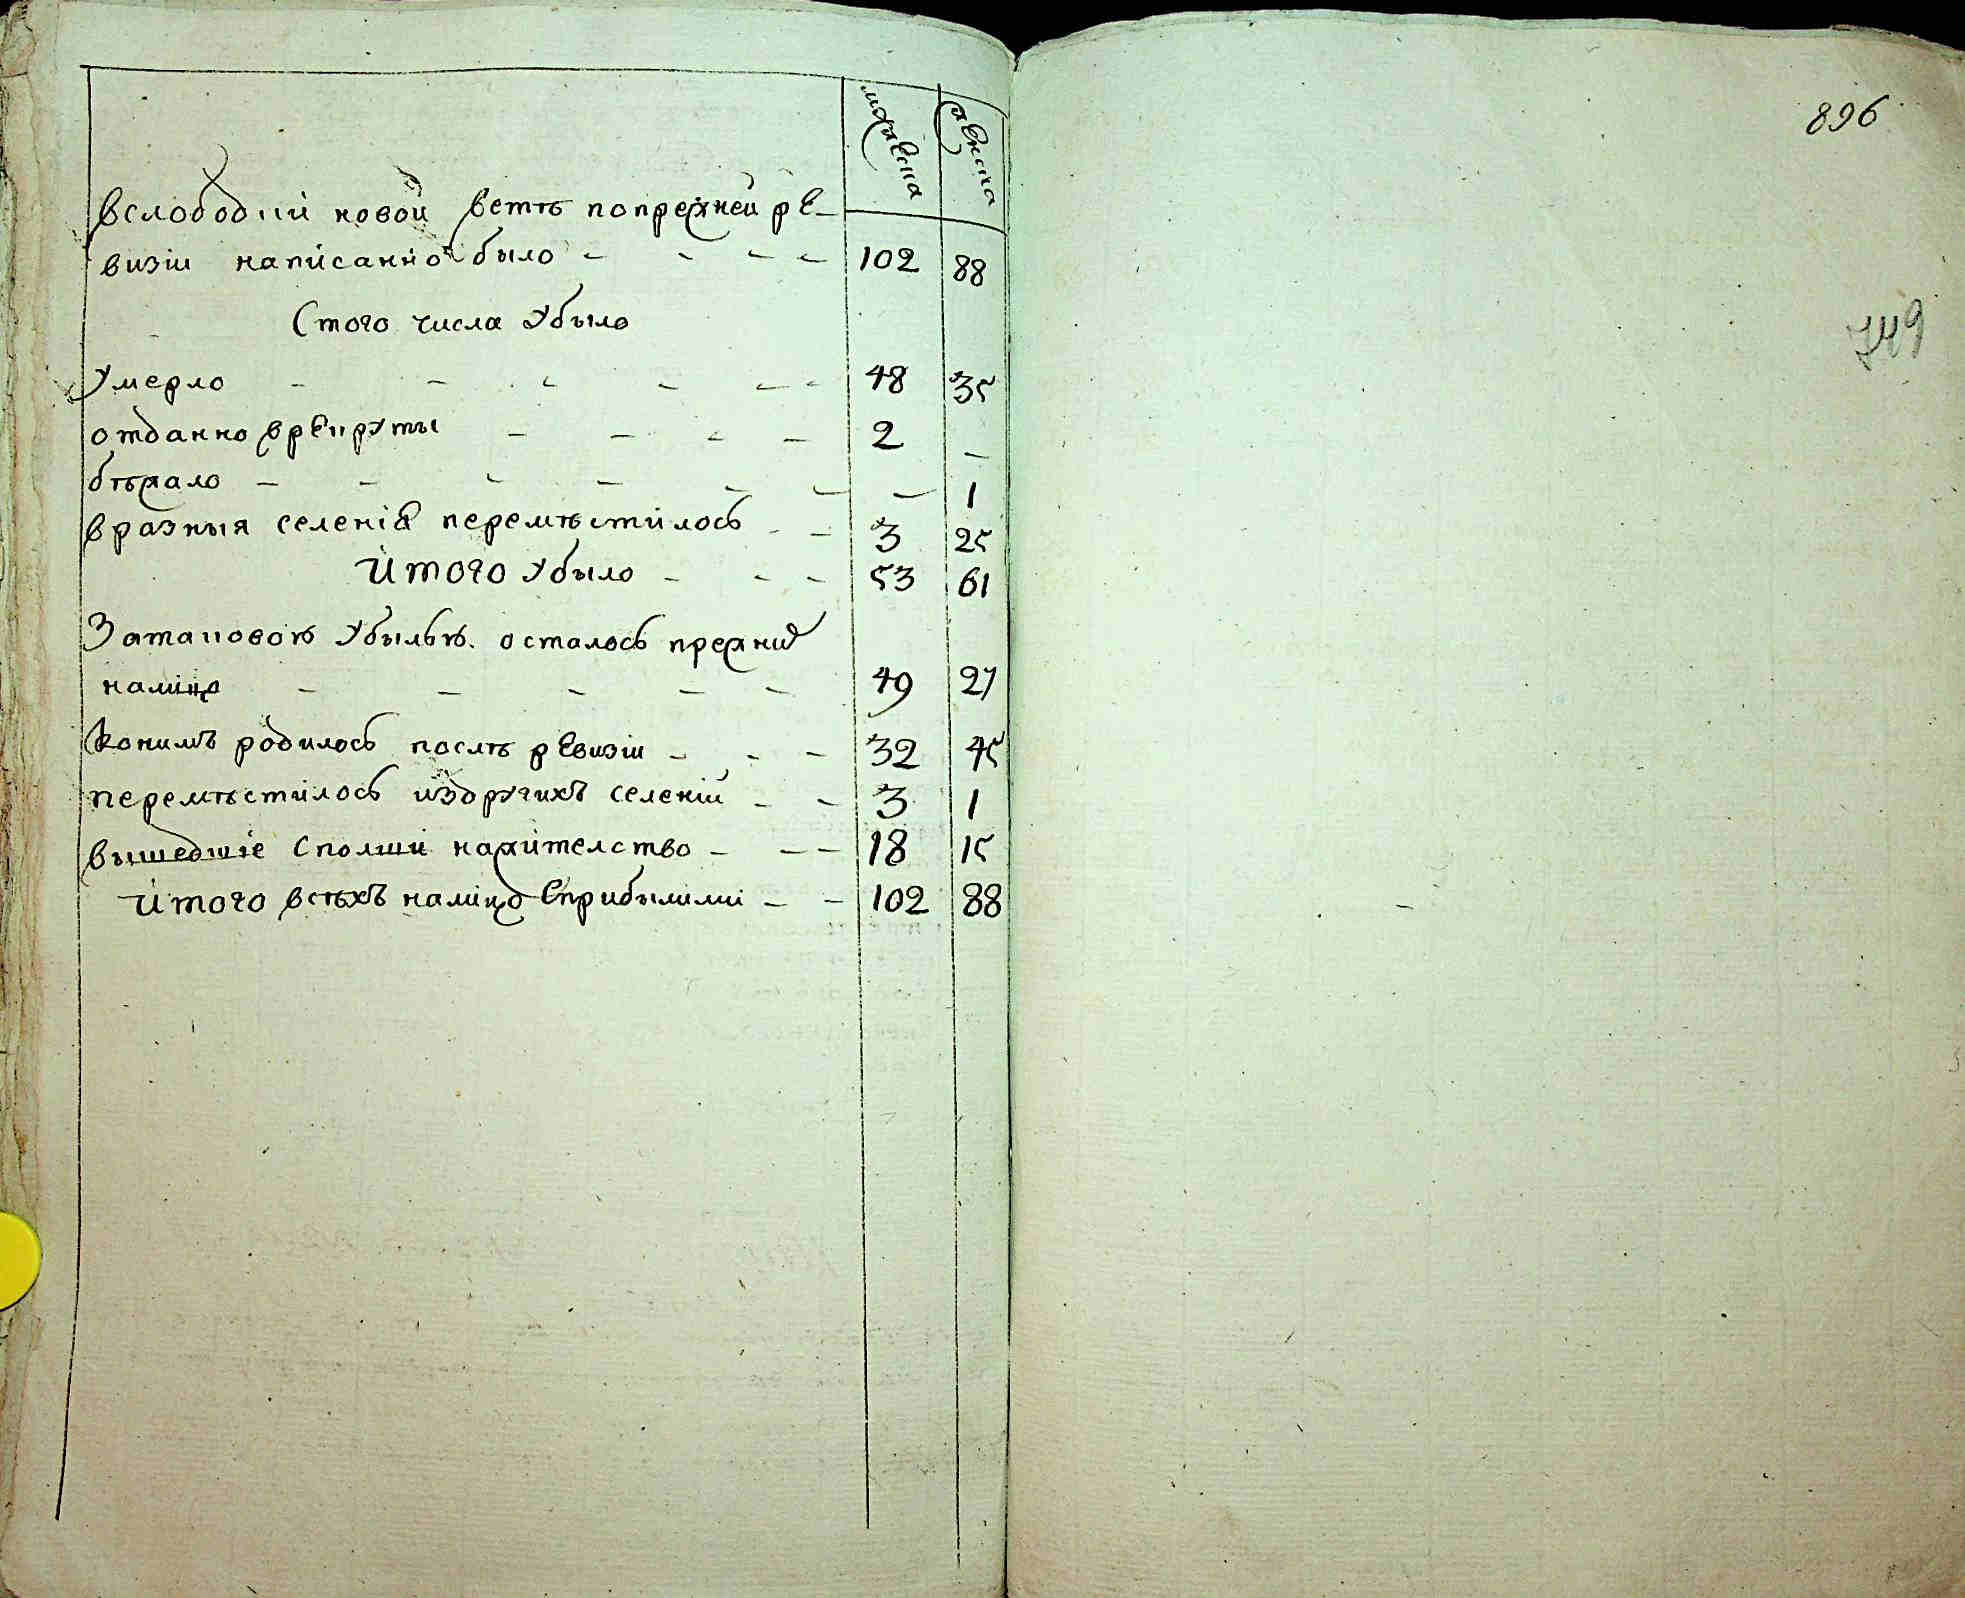 мужеска
женска
896
в слободки новой ветть по прежней ре-
визіи написанно было - - - - 102 88
749
С того числа убыло
умерло - - - - - - 48 35
отданно в рекруты - - - - 2 -
бѣжало - - - - - - - 1
в разныя селенія перемѣстилось - - 3 25
Итого убыло - - - 53 61
За таковою убылью осталось прежнихъ
налицо - - - - - 49 27
К онимъ родилось послѣ ревизіи - - - 32 45
перемѣстилось из другихъ селеній - - 3 1
вышедшіе с полши на жителство - - - 18 15
Итого всѣхъ налицо с прибылими - - 102 88